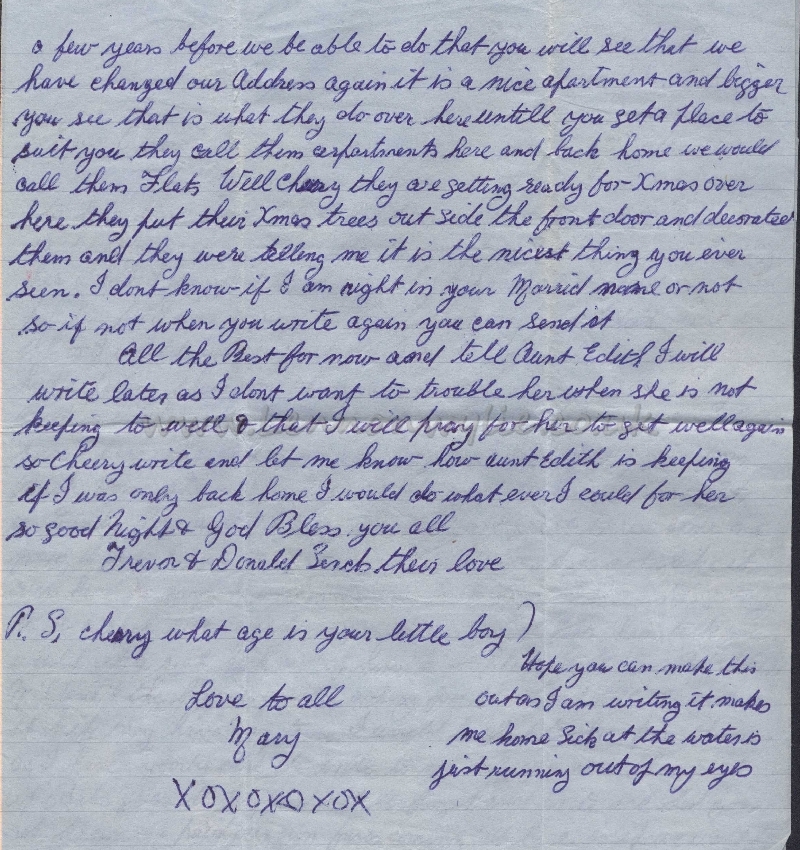 a few years before we be able to do that you will see that we
have changed our Address again it is a nice apartment and bigger
you see that is what they do over here untill you get a place to
suit you they call them arpartments here and back home we would
call them Flats Well Cherry they are getting ready for Xmas over
here they put their Xmas trees out side the front door and decorated
them and they were telling me it is the nicest thing you ever
seen. I dont know if I am right in your Marrid name or not
so if not when you write again you can send it
All the Best for now and tell Aunt Edith I will
write later as I dont want to trouble her when she is not
keeping to well & that I will pray for her to get well again
so Cheery write and let me know how aunt Edith is keeping
if I was only back home I would do what ever I could for her
so good Night & God Bless you all
Trevor & Donald Sends their love
P. S, cherry what age is your little boy)
Love to all
Mary
XOXOXOXOX
Hope you can make this
out as I am writing it makes
me home Sick at the water is
just running out of my eyes